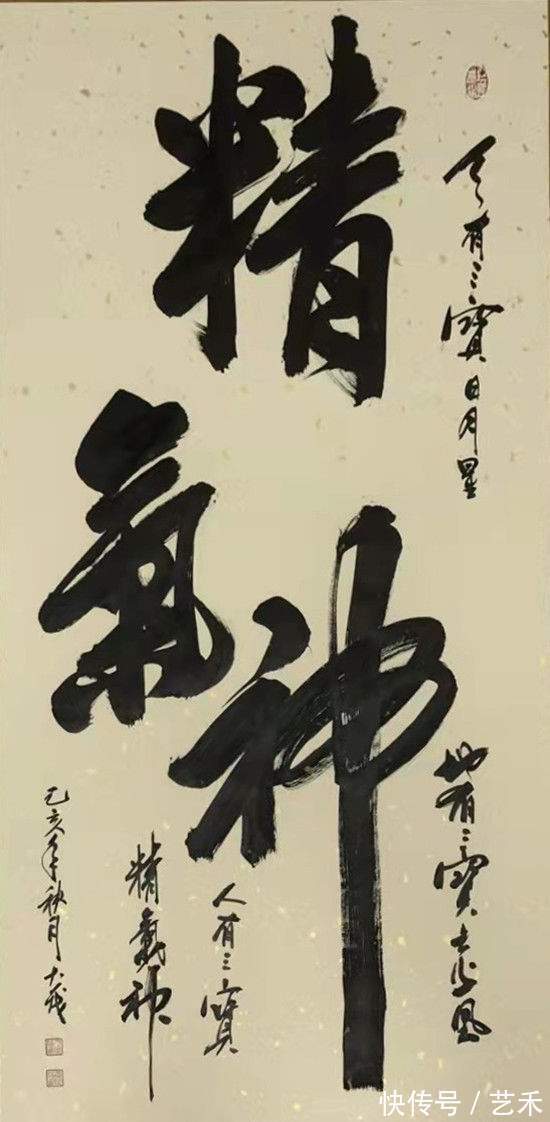 精
氣
神
天有三寶日月星
地有三寶水火風
人有三寶
精氣神
己亥年秋月
快传号 / 艺禾